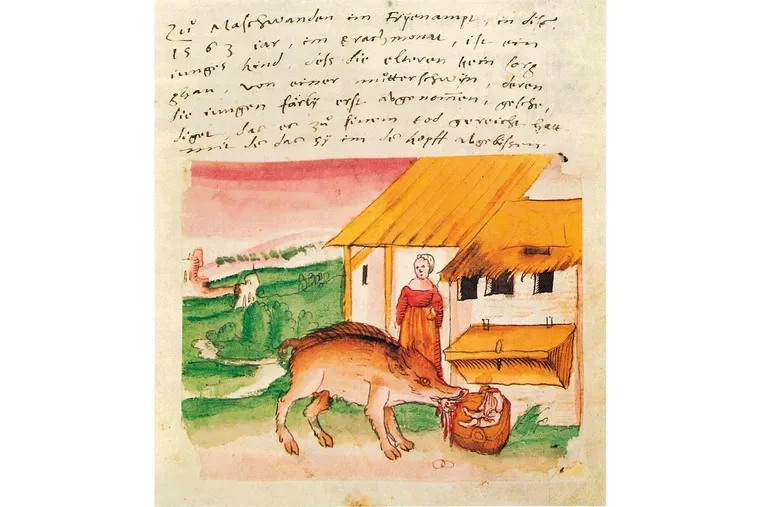 Zů Maschwanden im Fryenampt, in diß
1563 iar, im brachmonat, ist ein
iunges kind, deß die elteren kein sorg
ghan, von einer můtterschwyn, deren
die iungen färly erst abgenommen, gesche,
diget, das es zů sinem tod gereicht hatt
mit dē das sy im dē kopff abgebissen